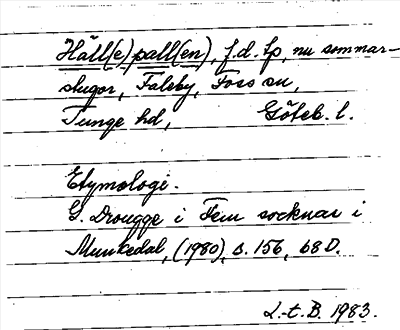 Häll(e)pall(en), f.d. tp, nu sommar-
stugor, Faleby, Foss sn,
Tunge hd, Göteb. l.
Etymologi.
G. Drougge i Fem socknar i
Munkedal, (1980), s. 156, 68 D.
L-t.B. 1983.